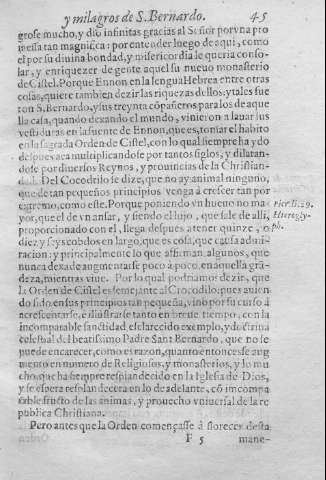 y milagros de S. Bernardo. 45
grose mucho, y dio infinitas gracias al Señor por vna pro
messa tan magnifica: por entender luego de aqui, como
el por su diuina bondad, y misericordia le queria conso-
lar, y enriquezer de gente aquel su nueuo monasterio
de Cistel. Porque Ennon en la lengua Hebrea entre otras
cosas, quiere tambien dezir las riquezas dellos: y tales fue
ron S. Bernardo, y sus treynta cõpañeros para los de aque
lla casa, quando dexando el mundo, vinieron a lauar sus
vestiduras en la fuente de Ennon, que es, tomar el habito
en la sagrada Orden de Cistel, con lo qual siempre ha y do
despues aca multiplicandose por tantos siglos, y dilatan-
dose por diuersos Reynos, y prouincias de la Christian-
dad. Del Cocodrilo se dize, que no ay animal ninguno,
que de tan pequeños principios venga à crescer tan por
estremo, como este. Porque poniendo vn hueuo no ma
yor, que el de vn ansar, y siendo el hijo, que sale de alli,
proporcionado con el, llega despues a tener quinze, o
diez y seys cobdos en largo, que es cosa, que causa admi-
racion: y principalmente lo que affirman algunos, que
nunca dexa de augmentarse poco à poco, en aquella grã-
deza, mientras viue. Por lo qual podriamos dezir, que
la Orden de Cistel es semejante al Crocodilo: pues auien
do sido en sus principios tan pequeña, vino por su curso à
acrescentarse, e illustrarse tanto en breue tiempo, con la
incomparable sanctidad esclarecido exemplo, y doctrina
celestial del beatissimo Padre Sant Bernardo, que no se
puede encarecer, como es razon, quanto entonces se aug
mento en numero de Religiosos, y monasterios, y lo mu
cho, que ha siempre resplandecido en la Iglesia de Dios,
y se espera resplandecera en lo de adelante, cõ incompa
rable fructo de las animas, y prouecho vniuersal de la re
publica Christiana.
Pero antes que la Orden començasse à florecer desta
F 5 mane-
Pier. li. 29.
Hierogly-
ph.